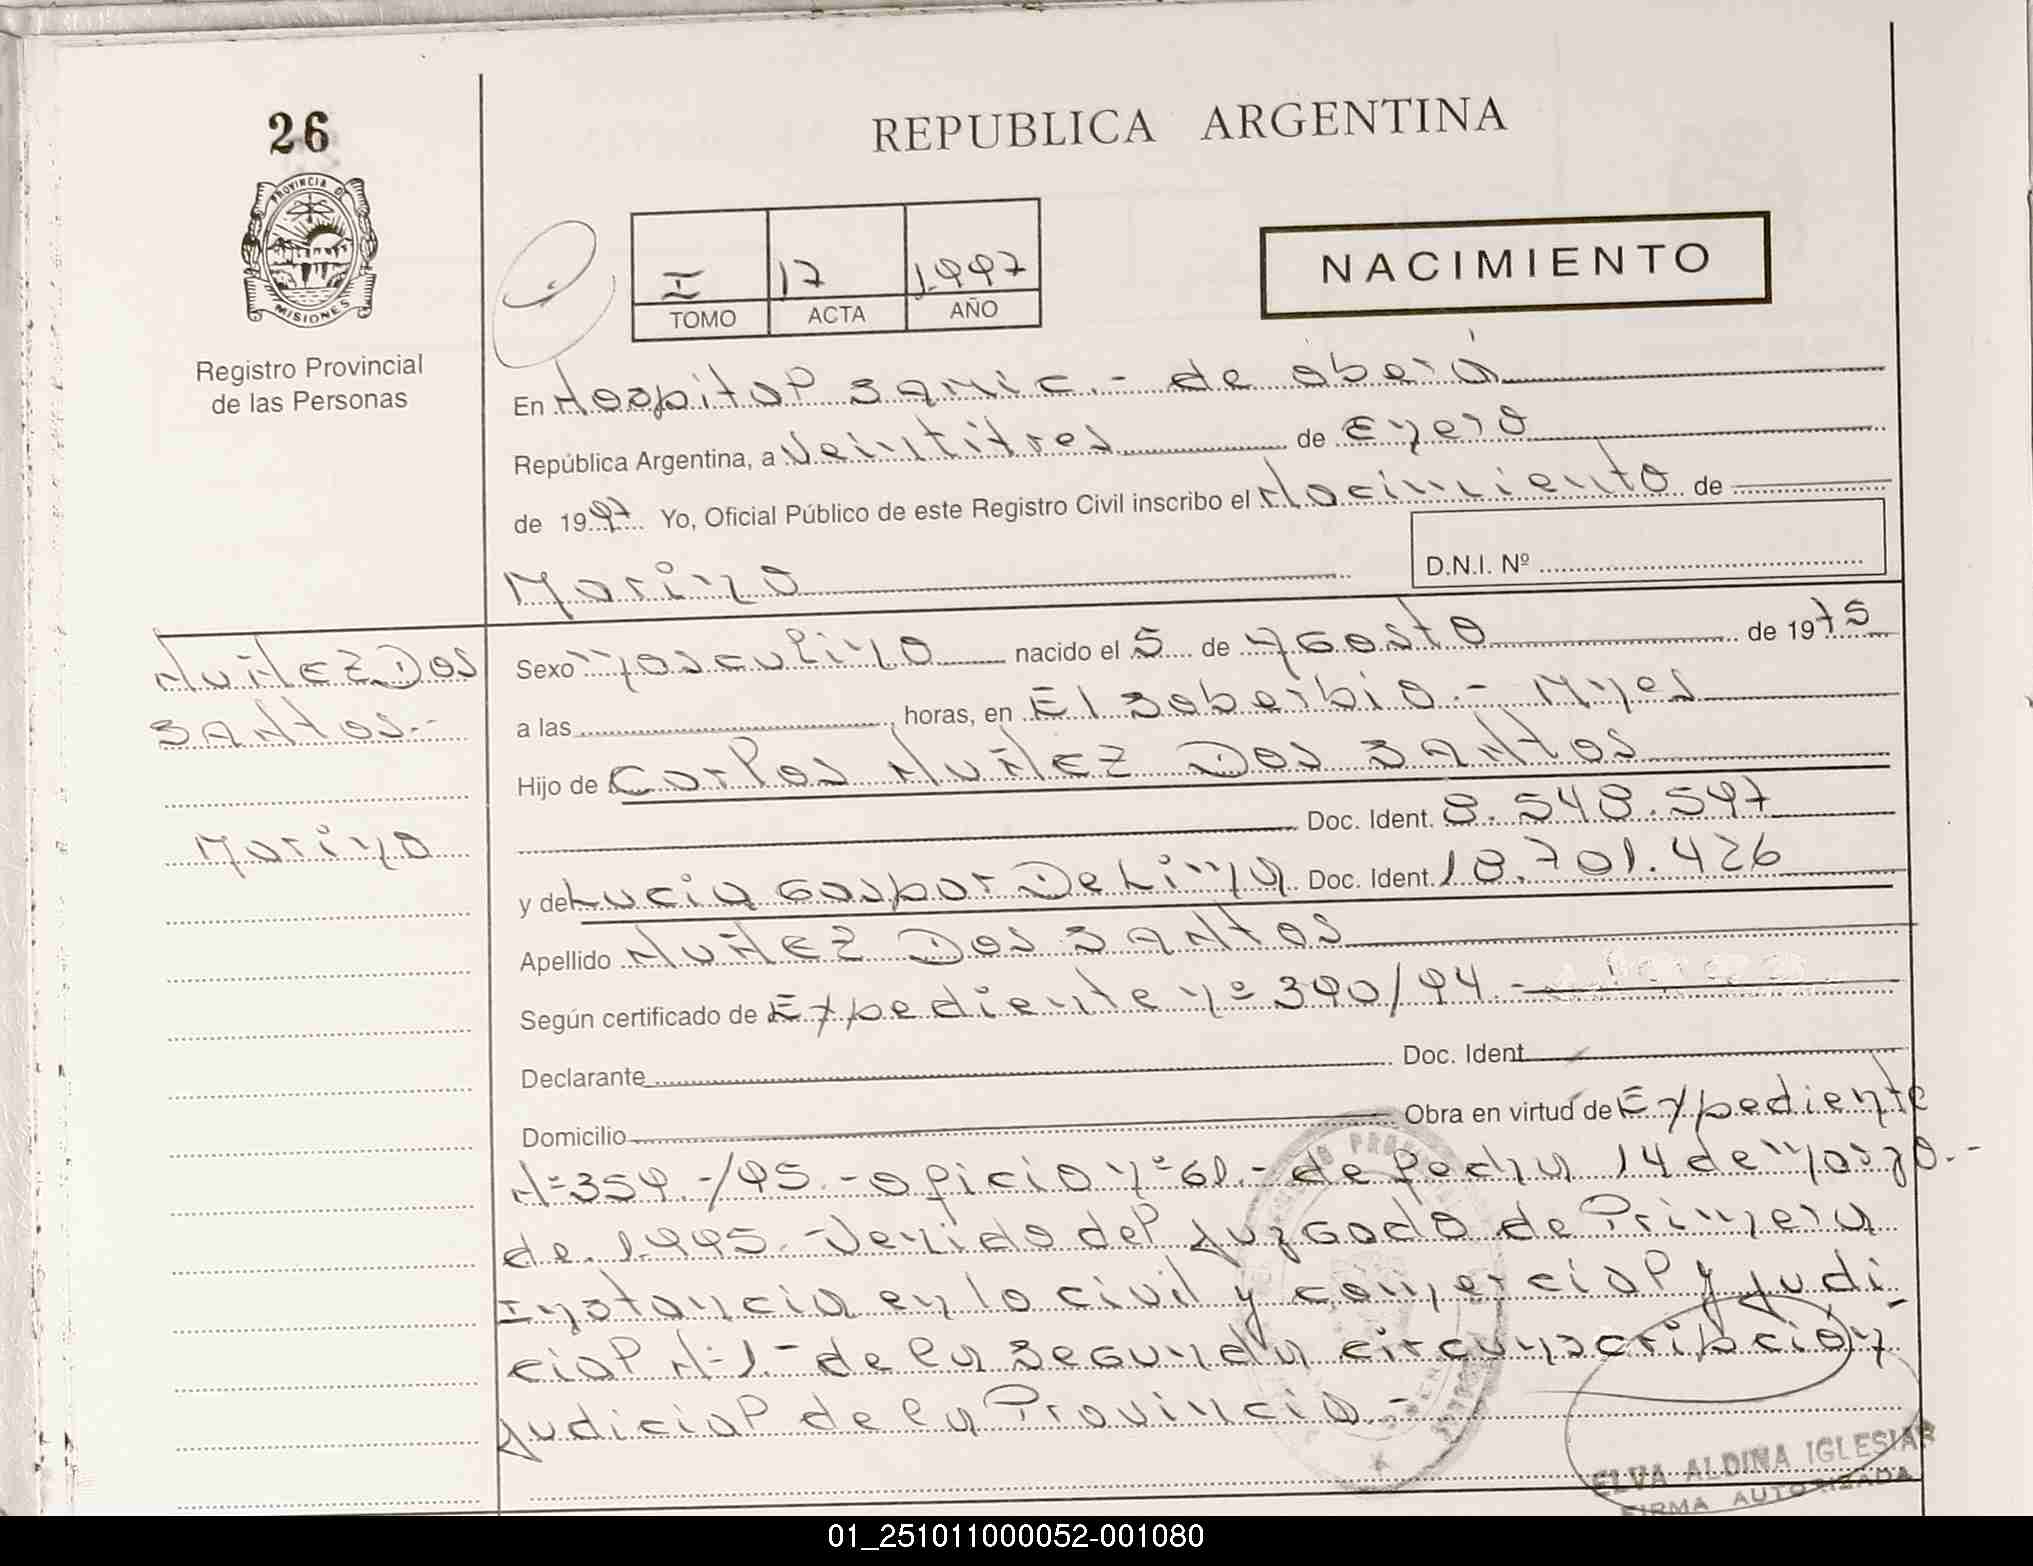 26
REPUBLICA ARGENTINA
PROVINCIA D
MISIONES
Registro Provincial
de las Personas
I 17 1.997
TOMO ACTA AÑO
NACIMIENTO
En Hospital SAMIC.- de oberá
República Argentina, a Veintitres de Enero
de 1997 Yo, Oficial Público de este Registro Civil inscribo el Nacimiento de
Marino
D.N.I. Nº
NUÑEZ Dos
SANtos.-
Marino
Sexo masculino nacido el 5 de Agosto de 1975
a las horas, en El Soberbio.- Mnes
Hijo de Carlos NUÑEZ Dos SANtos
Doc. Ident. 8.548.597
y de Lucia Gaspar De Lima Doc. Ident. 18.701.426
Apellido NUÑEZ Dos SANtos
Según certificado de Expediente nº 390/94.-
Declarante Doc. Ident.
Domicilio Obra en virtud de Expediente
Nº 359.-/95.-oficio nº 61.- de fecha 14 de marzo.-
de 1.995.-Venido del Juzgado de Primera
Instancia en lo civil y comercial y Judi
cial Nº 1.- de la Segunda circunscripción
Judicial de la Provincia.-
ELVA ALDINA IGLESIAS
FIRMA AUTORIZADA
01_251011000052-001080